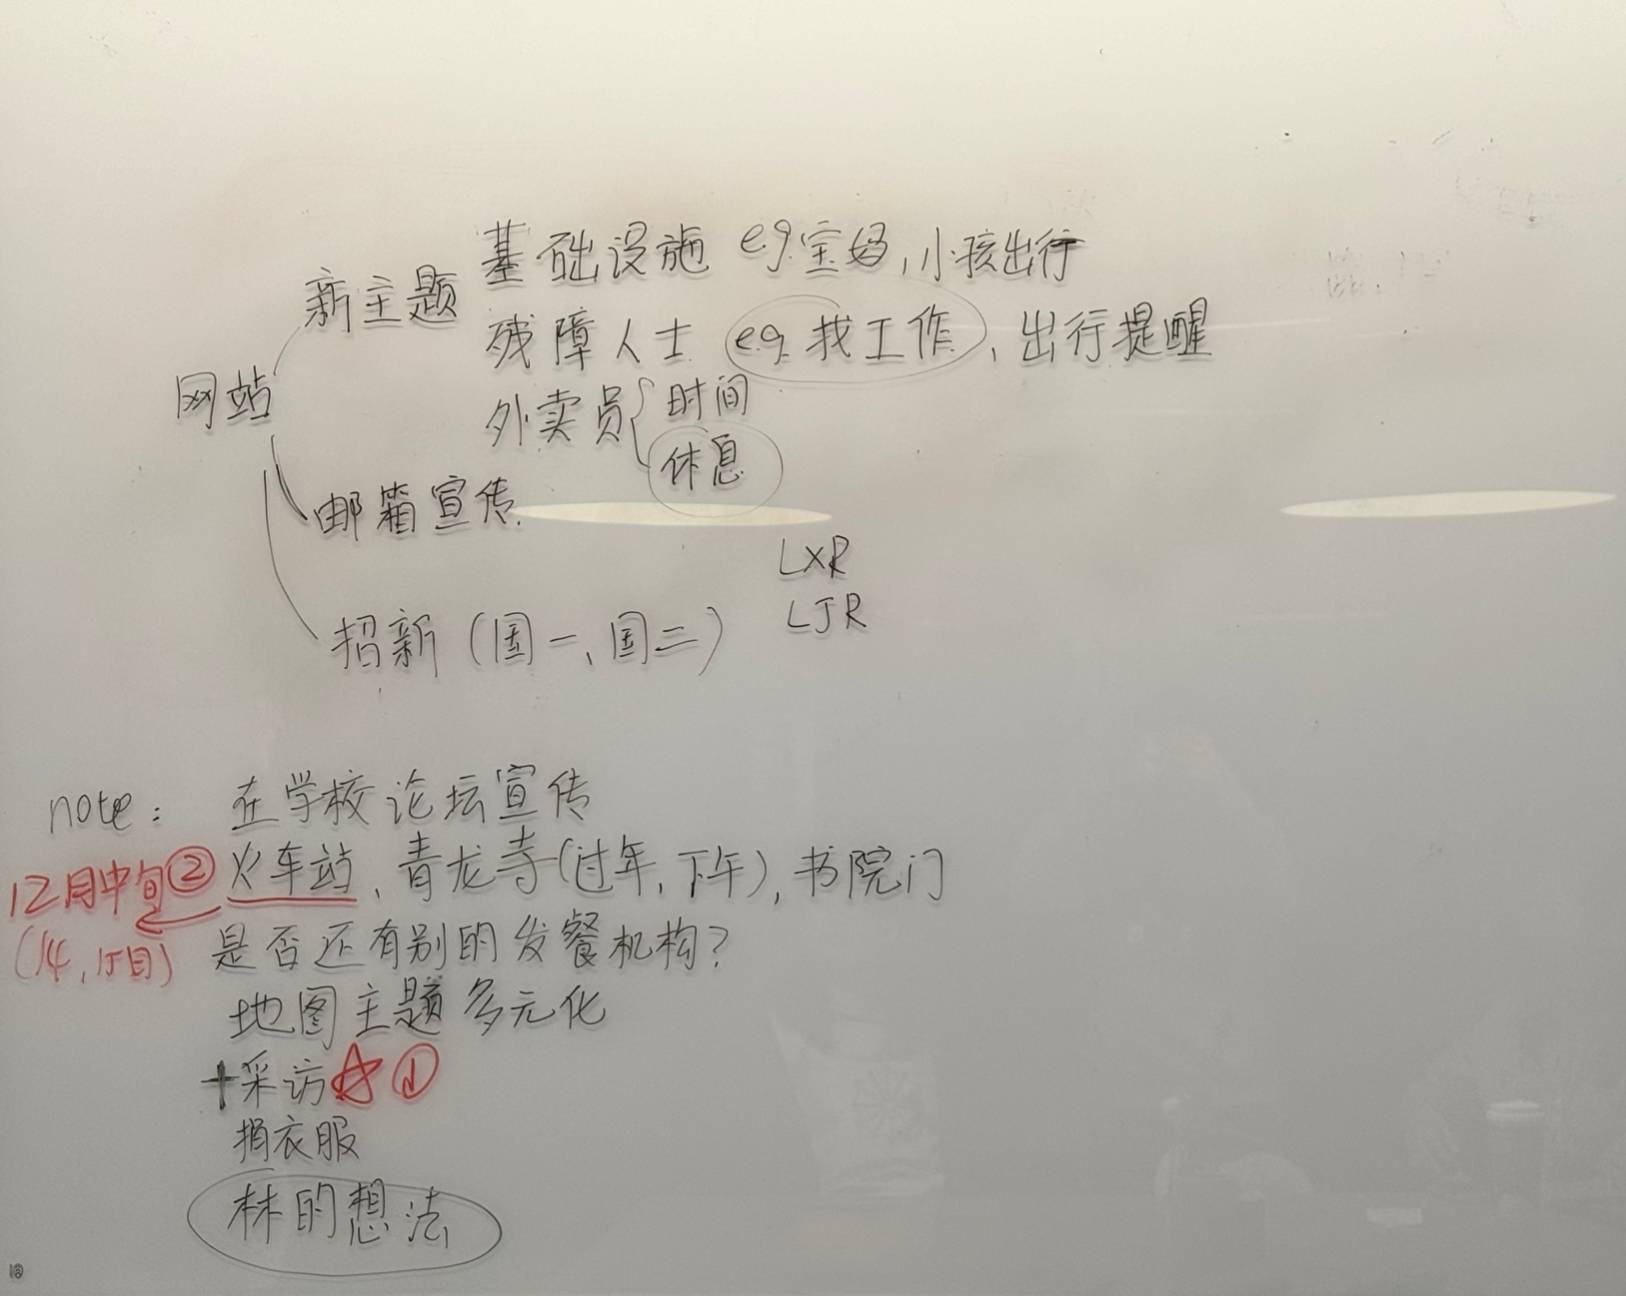 基础设施 e.g.宝妈,小孩出行
新主题
残障人士 e.g.找工作、出行提醒
网站
外卖员{时间
休息
邮箱宣传
LXR
LJR
招新(国一、国二)
note: 在学校论坛宣传
12月中旬②火车站、青龙寺(过年,下午),书院门
(14, 15日) 是否还有别的发餐机构?
地图主题多元化
+采访☆①
捐衣服
林的想法